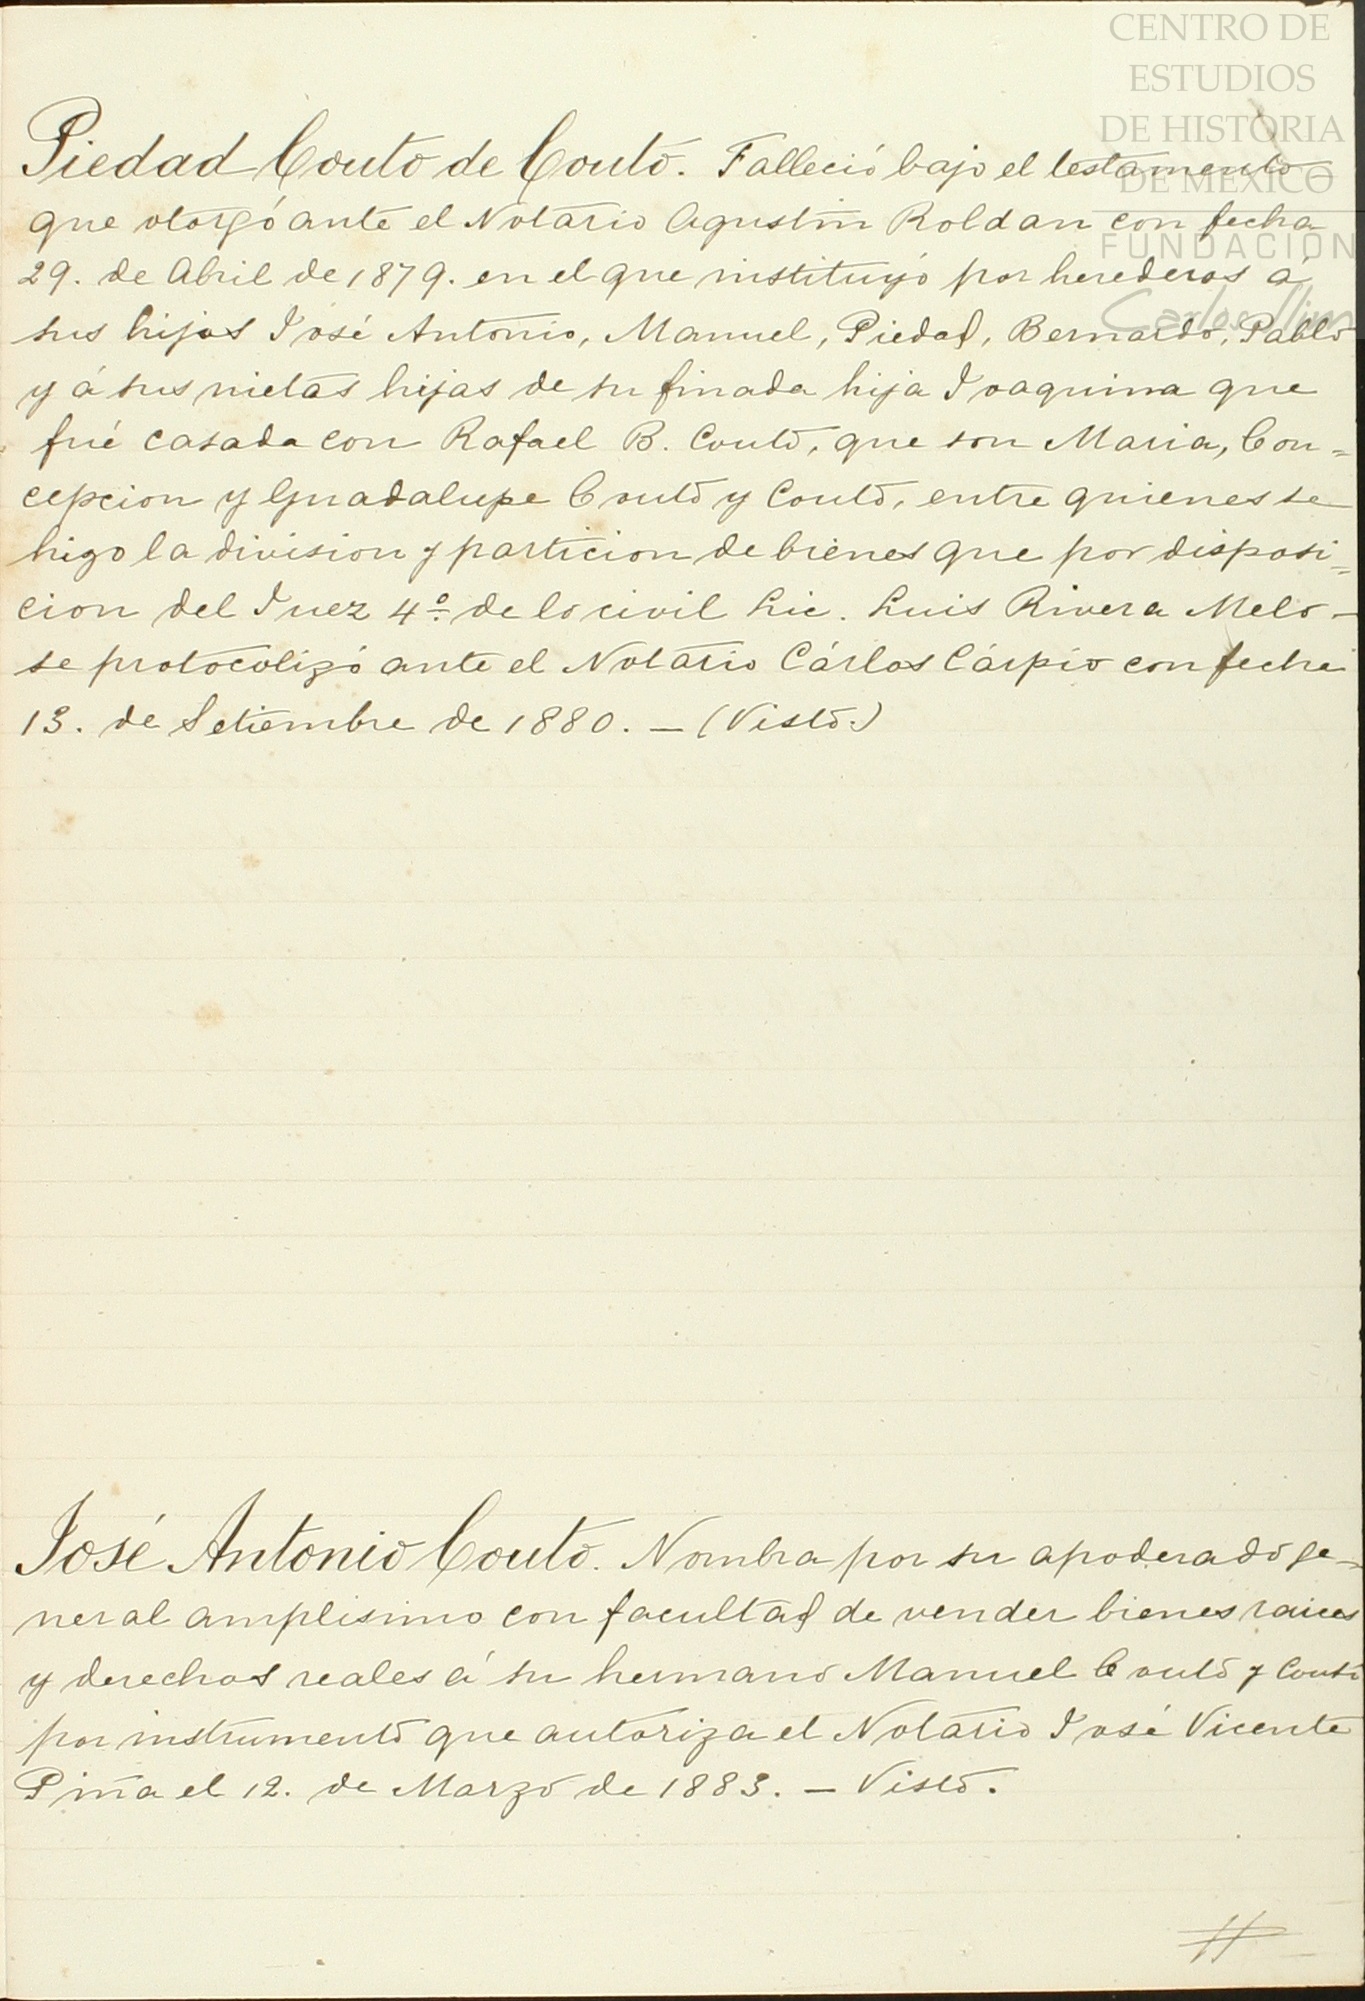 CENTRO DE
ESTUDIOS
DE HISTORIA
DE MEXICO
FUNDACIÓN
Carlos Slim
Piedad Couto de Couto. Falleció bajo el testamento
que otorgó ante el Notario Agustin Roldan con fecha
29. de Abril de 1879. en el que instituyó por herederos á
sus hijos José Antonio, Manuel, Piedad, Bernardo, Pablo
y á sus nietas hijas de su finada hija Joaquina que
fué casada con Rafael B. Couto, que son Maria, Con=
cepcion y Guadalupe Couto y Couto, entre quienes se
hizo la division y particion de bienes que por disposi=
cion del Juez 4º de lo civil Lic. Luis Rivera Melo-
se protocolizó ante el Notario Cárlos Cárpio con fecha
13. de Setiembre de 1880. — (Visto.)
José Antonio Couto. Nombra por su apoderado ge=
neral amplisimo con facultad de vender bienes raices
y derechos reales á su hermano Manuel Couto y Couto
por instrumento que autoriza el Notario José Vicente
Piña el 12. de Marzo de 1883. — Visto.